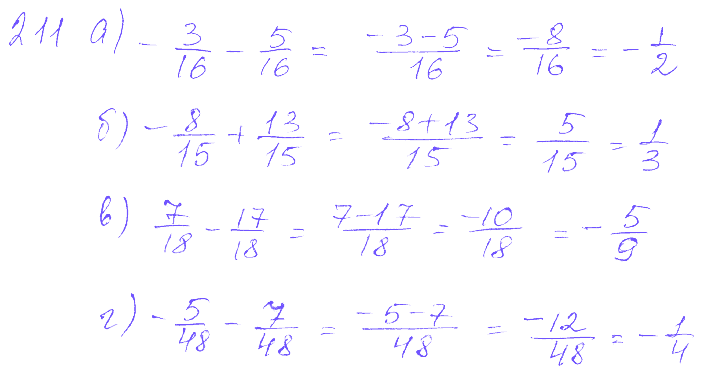 211 а) -3/16 - 5/16 = (-3-5)/16 = -8/16 = -1/2
б) -8/15 + 13/15 = (-8+13)/15 = 5/15 = 1/3
в) 7/18 - 17/18 = (7-17)/18 = -10/18 = -5/9
г) -5/48 - 7/48 = (-5-7)/48 = -12/48 = -1/4